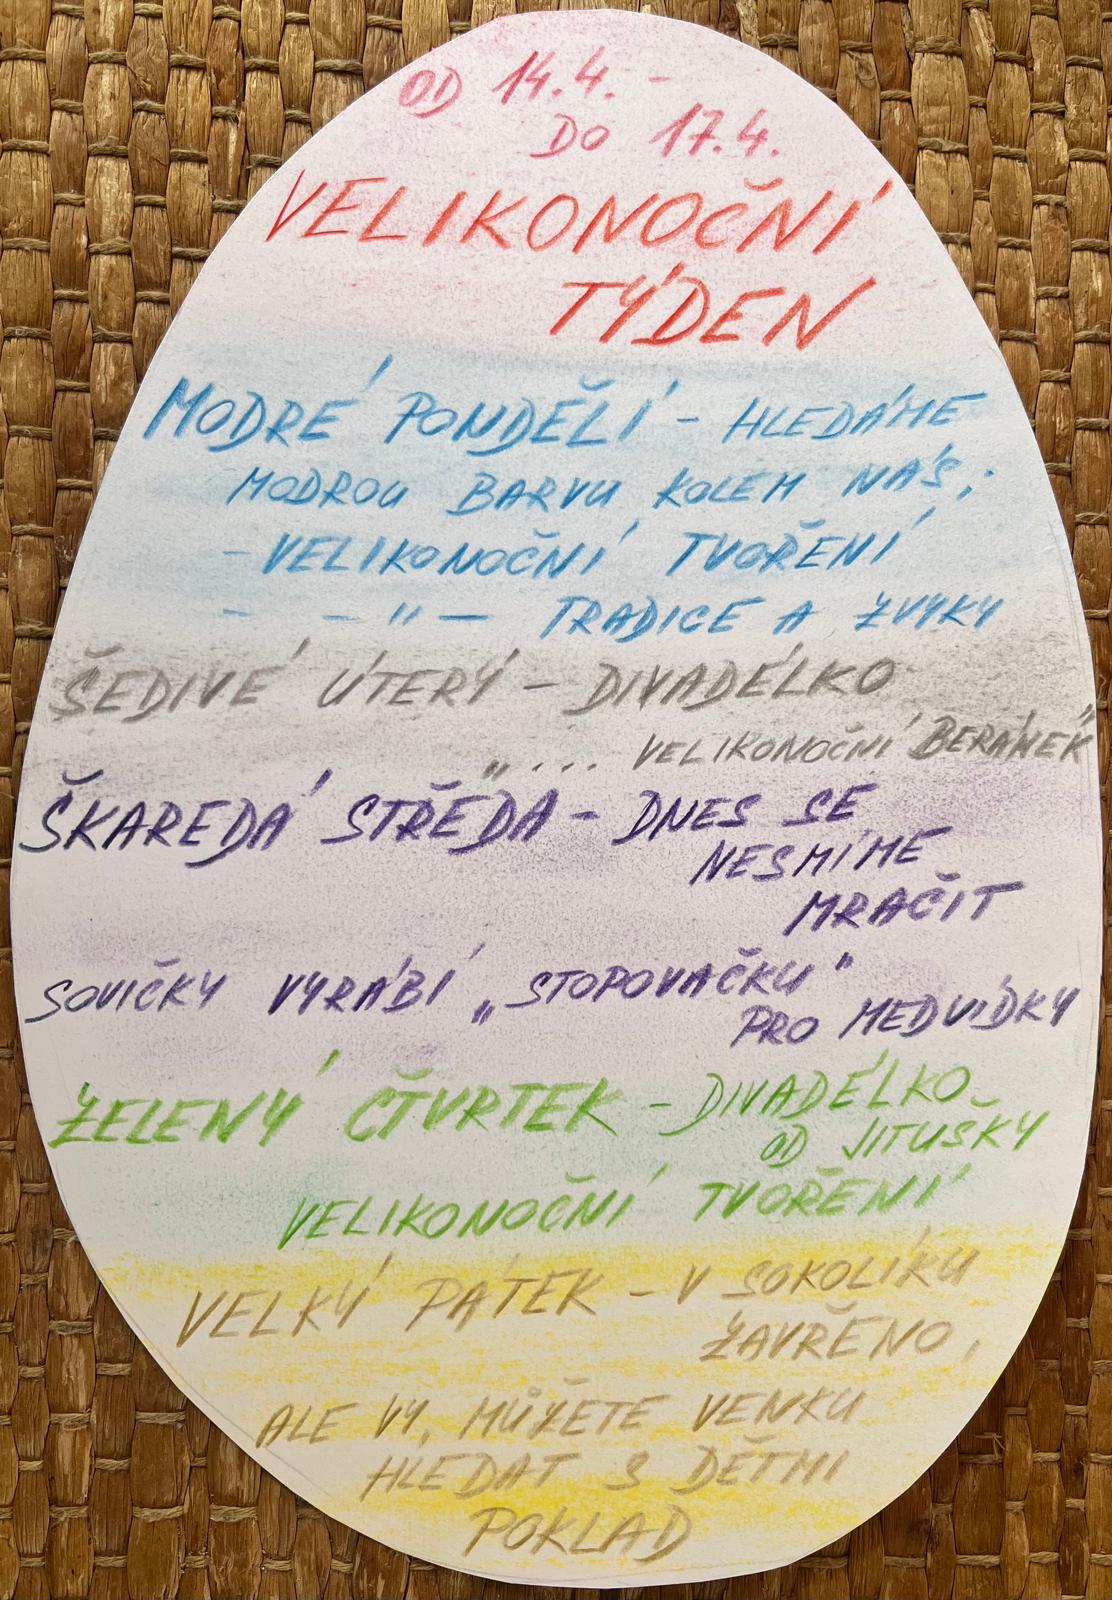 OD 14.4. -
DO 17.4.
VELIKONOČNÍ
TÝDEN
MODRÉ PONDĚLÍ - HLEDÁME
MODROU BARVU KOLEM NÁS;
- VELIKONOČNÍ TVOŘENÍ
- - " - TRADICE A ZVYKY
ŠEDIVÉ ÚTERÝ - DIVADÉLKO
"... VELIKONOČNÍ BERÁNEK"
ŠKAREDÁ STŘEDA - DNES SE
NESMÍME
MRAČIT
SOVIČKY VYRÁBÍ „STOPOVAČKU"
PRO MEDVÍDKY
ZELENÝ ČTVRTEK - DIVADÉLKO
OD JITUŠKY
VELIKONOČNÍ TVOŘENÍ
VELKÝ PÁTEK - V SOKOLÍKU
ZAVŘENO,
ALE VY, MŮŽETE VENKU
HLEDAT S DĚTMI
POKLAD